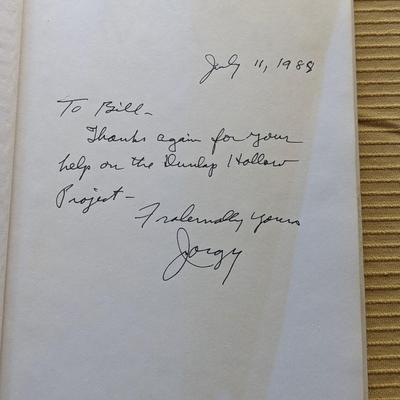 July 11, 1988
To Bill-
Thanks again for your
help on the Dunlap Hollow
Project-
Fraternally yours
Jorgy